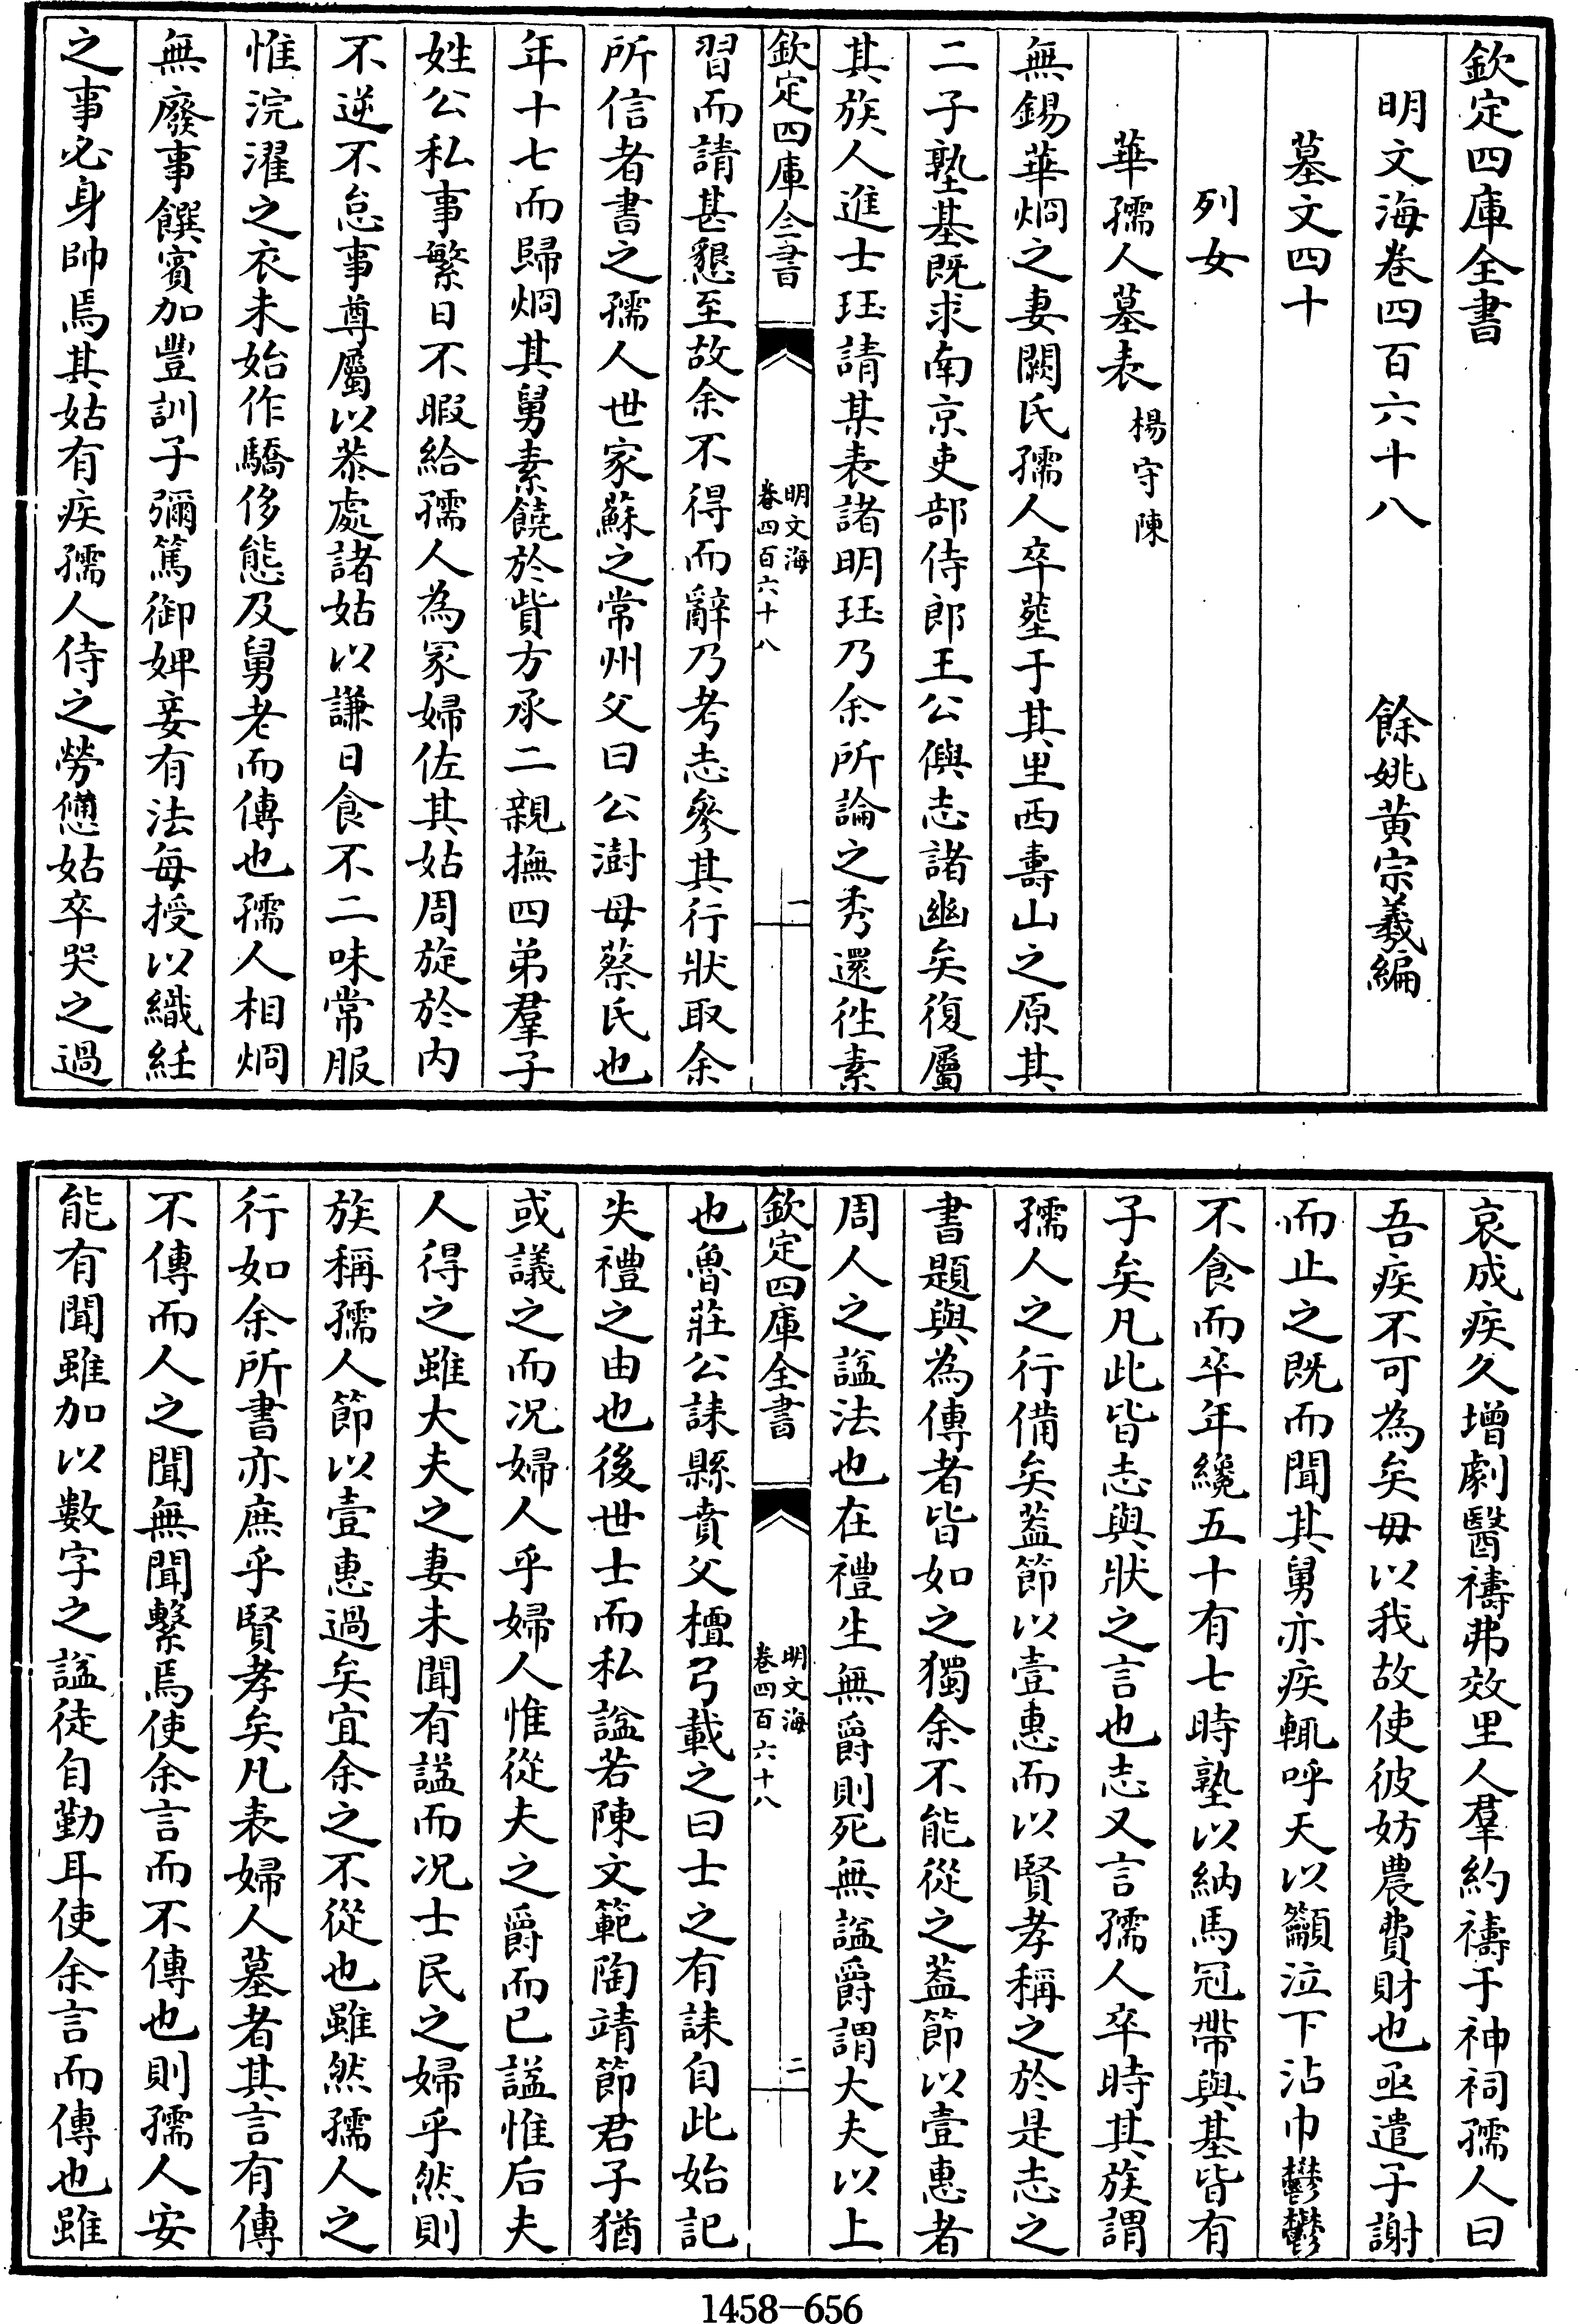 欽定四庫全書
明文海卷四百六十八　　　餘姚黃宗羲編
墓文四十
列女
華孺人墓表　楊守陳
無錫華炯之妻闕氏孺人卒塟于其里西壽山之原其
二子塾基既求南京吏部侍郎王公㒜志諸幽矣復屬
其族人進士珏請某表諸明珏乃余所論之秀還徃素
欽定四庫全書
明文海
卷四百六十八
一
習而請甚懇至故余不得而辭乃考志參其行狀取余
所信者書之孺人世家蘇之常州父曰公澍母蔡氏也
年十七而歸炯其舅素饒於貲方承二親撫四弟羣子
姓公私事繁日不暇給孺人為冢婦佐其姑周旋於内
不逆不怠事尊屬以恭處諸姑以謙日食不二味常服
惟浣濯之衣未始作驕侈態及舅老而傳也孺人相炯
無廢事饌賓加豐訓子彌篤御婢妾有法每授以織紝
之事必身帥焉其姑有疾孺人侍之勞憊姑卒哭之過
哀成疾久增劇醫禱弗效里人羣約禱于神祠孺人曰
吾疾不可為矣毋以我故使彼妨農費財也亟遣子謝
而止之既而聞其舅亦疾輒呼天以籲泣下沾巾鬱鬱
不食而卒年纔五十有七時塾以納馬冠帶與基皆有
子矣凡此皆志與狀之言也志又言孺人卒時其族謂
孺人之行備矣葢節以壹惠而以賢孝稱之於是志之
書題與為傳者皆如之獨余不能從之葢節以壹惠者
周人之諡法也在禮生無爵則死無諡爵謂大夫以上
欽定四庫全書
明文海
卷四百六十八
二
也魯莊公誄縣賁父檀弓載之曰士之有誄自此始記
失禮之由也後世士而私諡若陳文範陶靖節君子猶
或議之而况婦人乎婦人惟從夫之爵而已諡惟后夫
人得之雖大夫之妻未聞有諡而况士民之婦乎然則
族稱孺人節以壹惠過矣宜余之不從也雖然孺人之
行如余所書亦庶乎賢孝矣凡表婦人墓者其言有傳
不傳而人之聞無聞繫焉使余言而不傳也則孺人安
能有聞雖加以數字之諡徒自勤耳使余言而傳也雖
1458－656